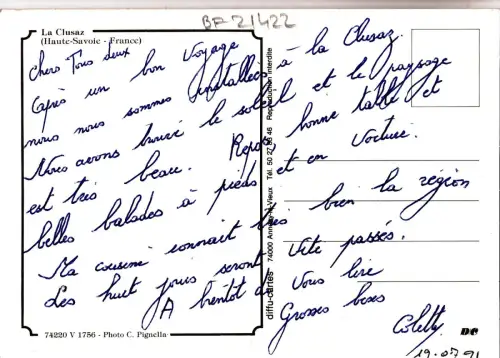 BF 21422
La Clusaz
(Haute-Savoie - France)
Chers Tous deux
Après un bon voyage
nous nous sommes installées à la Clusaz.
Nous avons trouvé le soleil et le paysage
est très beau. Repos, bonne table et
belles balades à pieds et en voiture.
Ma cousine connait très bien la région
Les huit jours seront vite passés.
A bientôt de vous lire
Grosses bises
Coletty
19.07.91
74220 V 1756 - Photo C. Pignella
diffu-cartes 74000 Annecy-le-Vieux Tél. 50 27 46 Reproduction interdite
DC